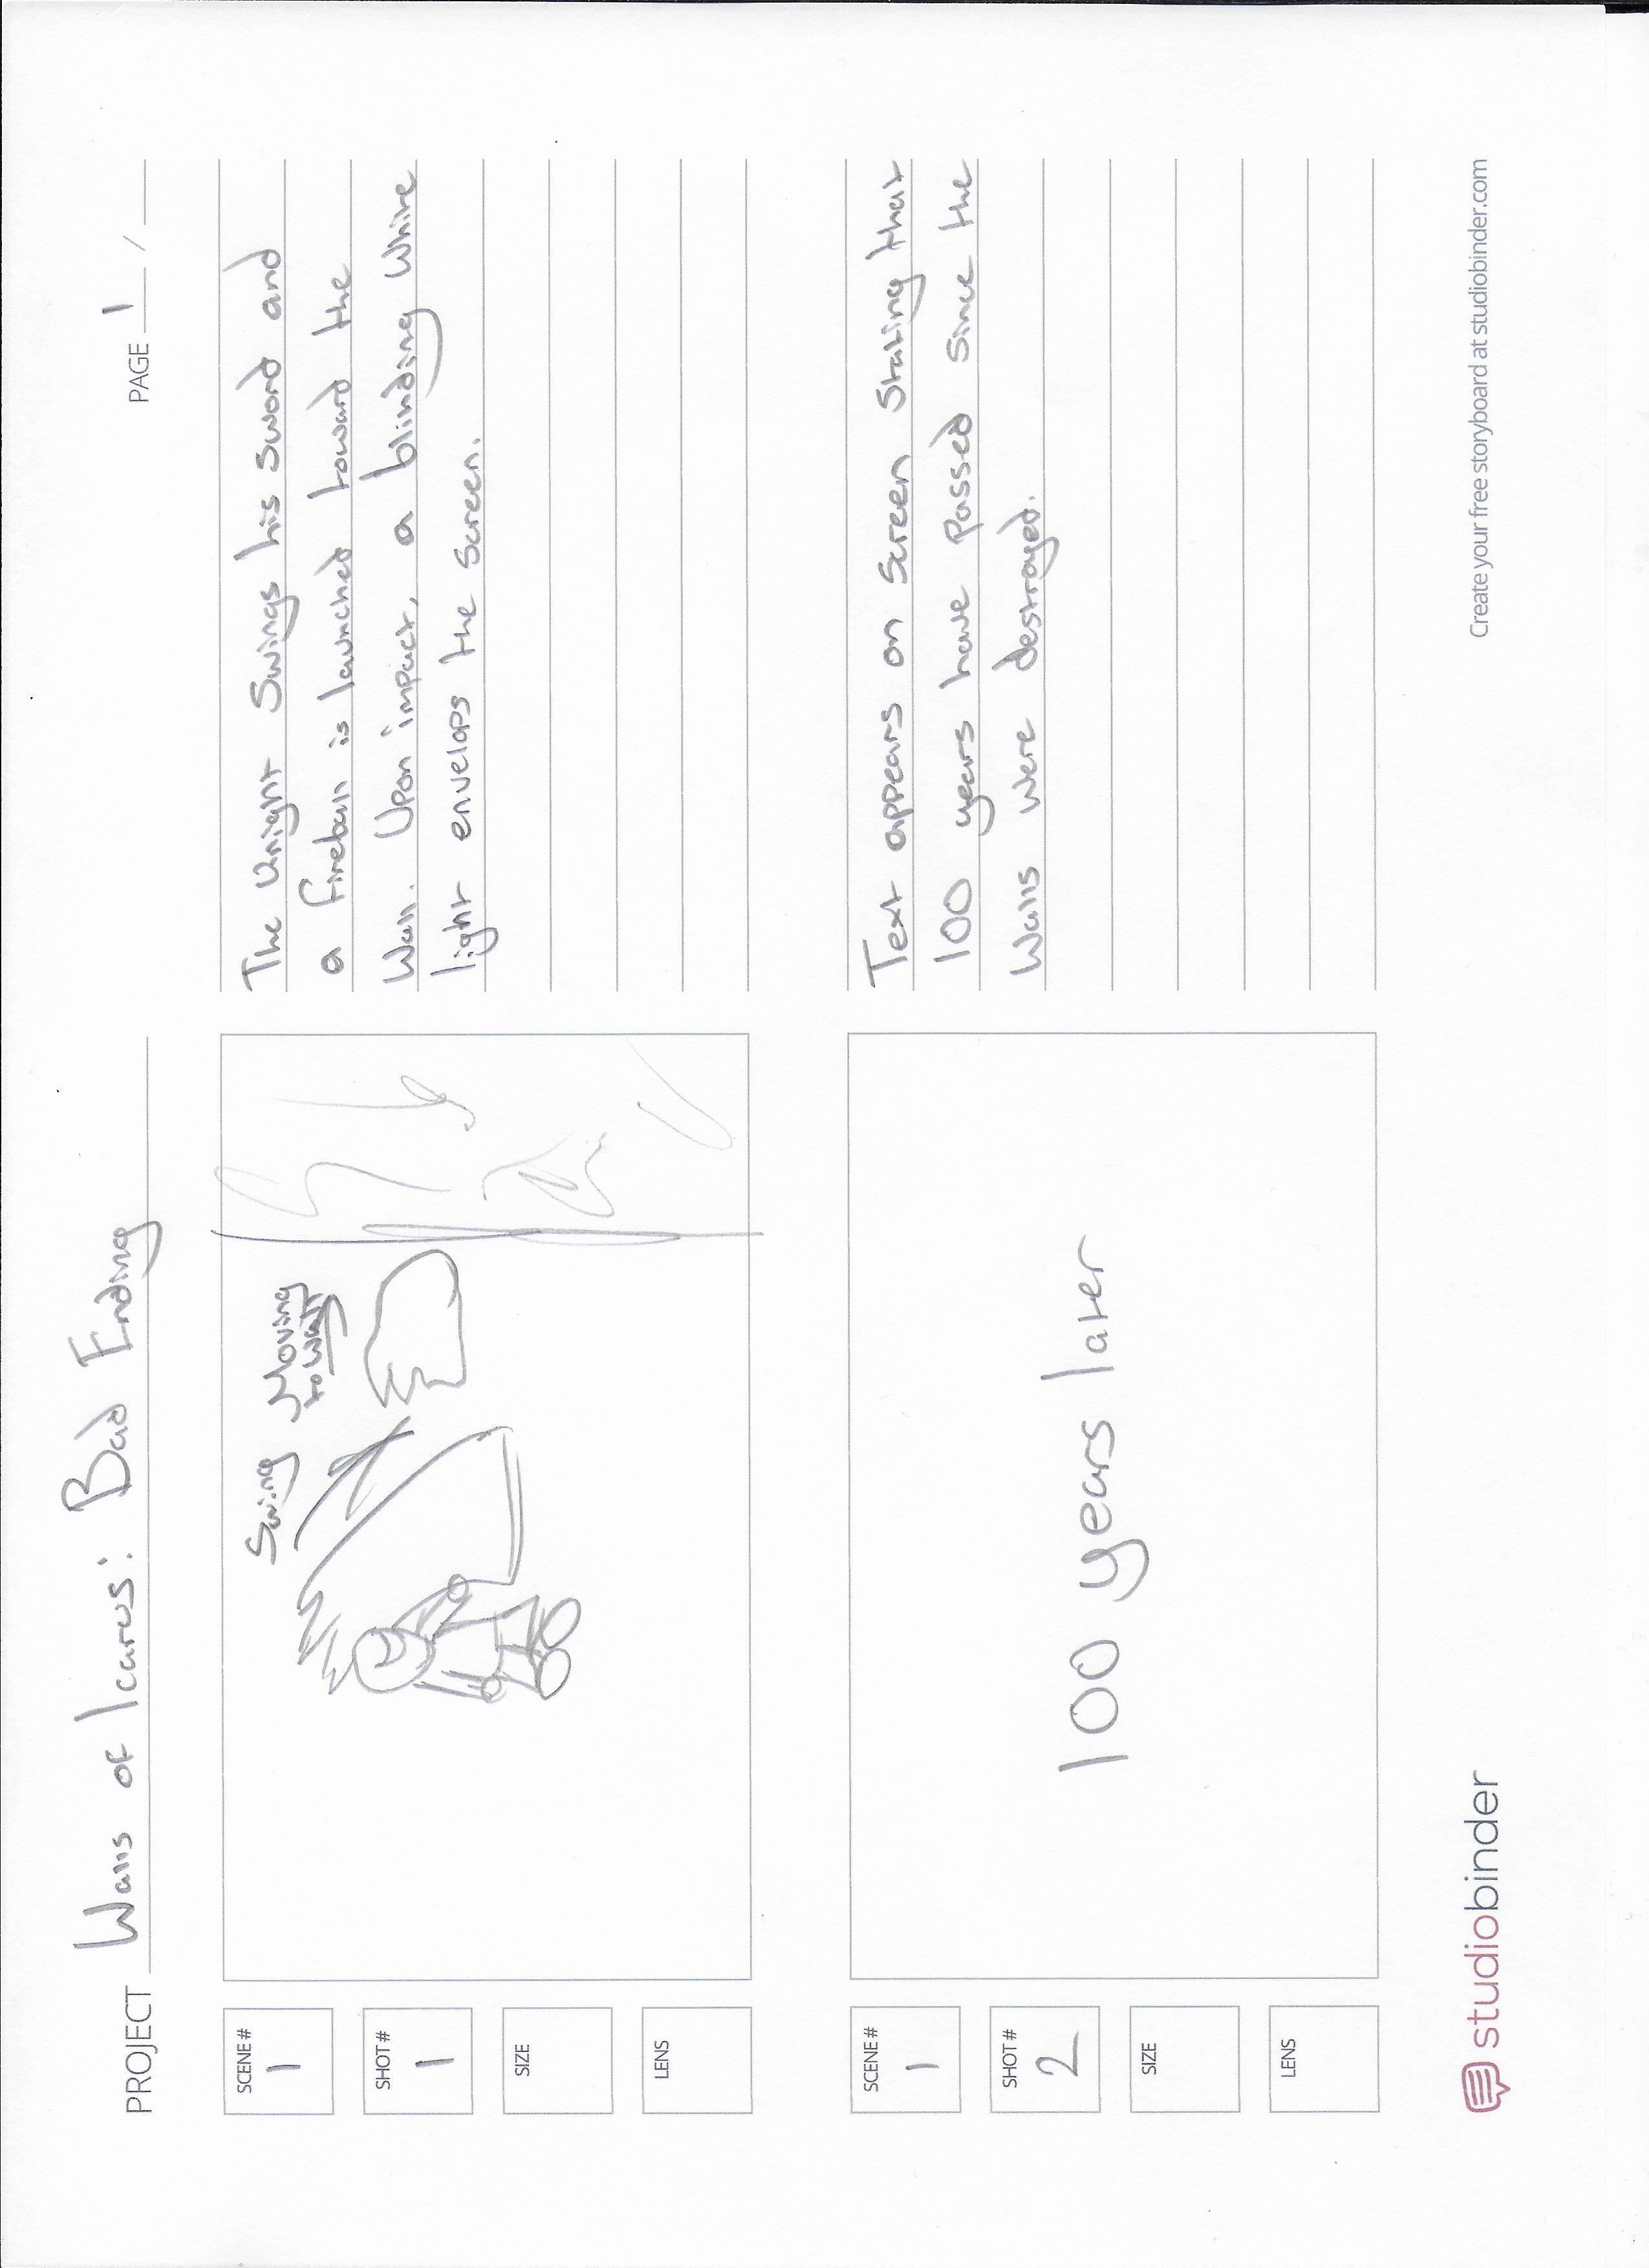 PROJECT Walls of Icarus: Bad Ending
PAGE 1 /
SCENE #
1
SHOT #
1
SIZE
LENS
Swing
Moving
to wall
The Knight Swings his Sword and
a fireball is launched toward the
Wall. Upon impact, a blinding White
light envelops the screen.
SCENE #
1
SHOT #
2
SIZE
LENS
100 years later
Text appears on Screen Stating that
100 years have passed since the
Walls were destroyed.
studiobinder
Create your free storyboard at studiobinder.com